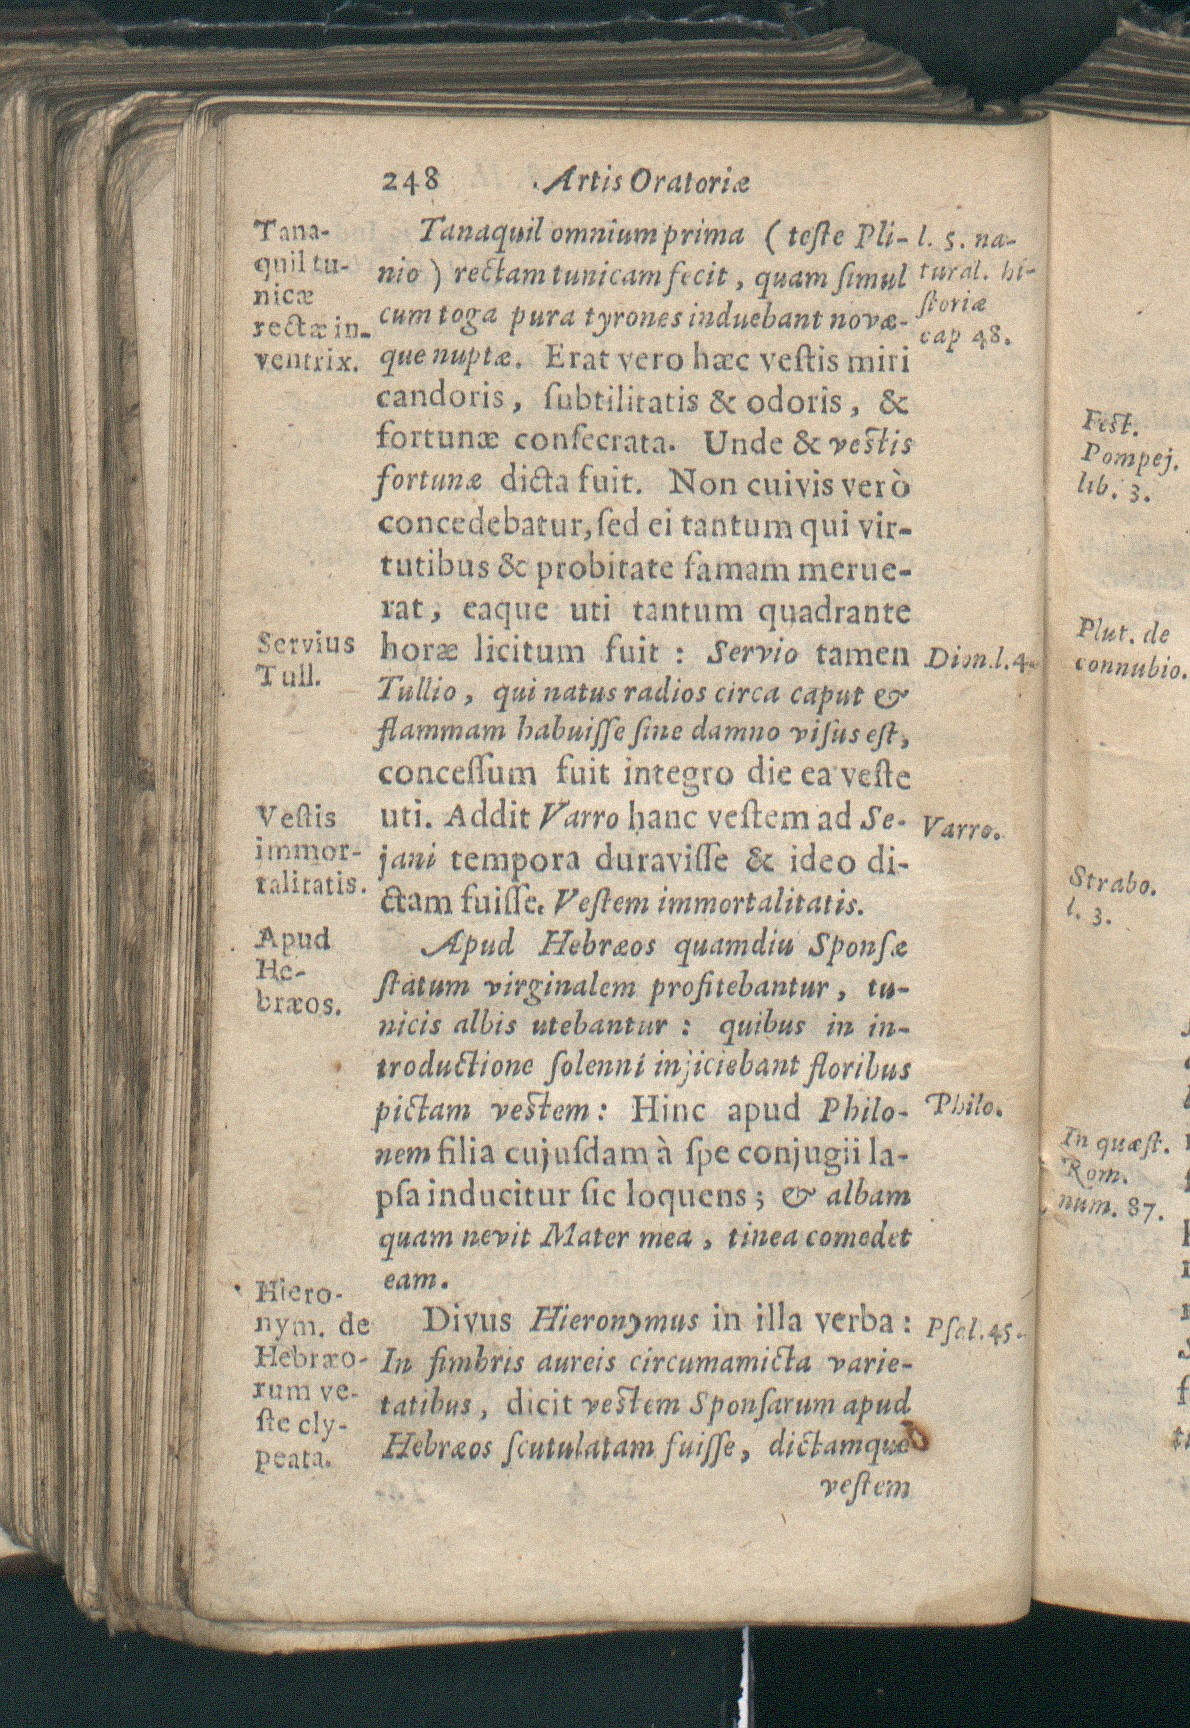 248 Artis Oratoriæ
Tana-
quil tu-
nicæ
rectæ in-
ventrix.
Tanaquil omnium prima ( teſte Pli-
nio ) rectam tunicam fecit, quam ſimul
cum toga pura tyrones induebant novæ-
que nuptæ. Erat vero hæc veſtis miri
candoris, ſubtilitatis & odoris, &
fortunæ conſecrata. Unde & veſtis
fortunæ dicta fuit. Non cuivis verò
concedebatur, ſed ei tantum qui vir-
tutibus & probitate famam merue-
rat, eaque uti tantum quadrante
horæ licitum fuit : Servio tamen
Tullio, qui natus radios circa caput &
flammam habuiſſe ſine damno viſus eſt,
conceſſum fuit integro die ea veſte
uti. Addit Varro hanc veſtem ad Se-
jani tempora duraviſſe & ideo di-
ctam fuiſſe. Veſtem immortalitatis.
l. 5. na-
tural. hi-
ſtoriæ
cap 48.
Servius
Tull.
Dion. l. 4.
Veſtis
immor-
talitatis.
Varro.
Apud
He-
bræos.
Apud Hebræos quamdiu Sponſæ
ſtatum virginalem profitebantur, tu-
nicis albis utebantur : quibus in in-
troductione ſolenni injiciebant floribus
pictam veſtem : Hinc apud Philo-
nem filia cujuſdam à ſpe conjugii la-
pſa inducitur ſic loquens ; & albam
quam nevit Mater mea, tinea comedet
eam.
Philo.
Hiero-
nym. de
Hebræo-
rum ve-
ſte cly-
peata.
Divus Hieronymus in illa verba :
In fimbris aureis circumamicta varie-
tatibus, dicit veſtem Sponſarum apud
Hebræos ſcutulatam fuiſſe, dictamque
veſtem
Pſal. 45.
Feſt.
Pompej.
lib. 3.
Plut. de
connubio.
Strabo.
l. 3.
In quæſt.
Rom.
num. 87.